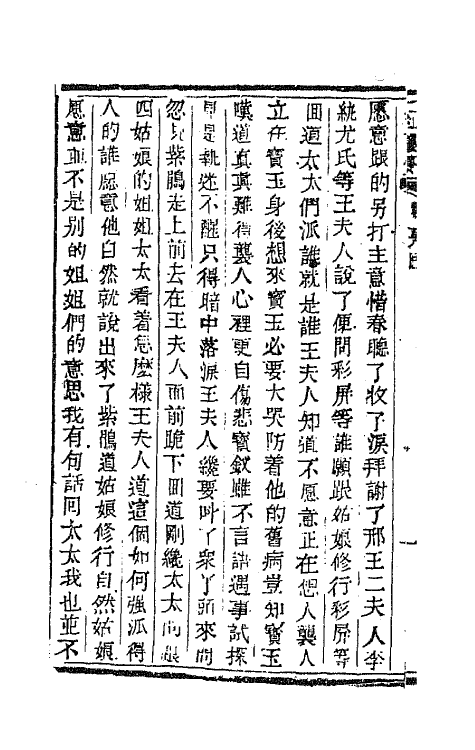 愿意跟的另打主意惜春聽了收了淚拜謝了邢王二夫人李
紈尤氏等王夫人說了便問彩屏等誰願跟姑娘修行彩屏等
回道太太們派誰就是誰王夫人知道不愿意正在想人襲人
立在寶玉身後想來寶玉必要大哭防着他的舊病豈知寶玉
嘆道真真難得襲人心裡更自傷悲寶釵雖不言語遇事試探
見是執迷不醒只得暗中落淚王夫人纔要叫了衆丫頭來問
忽見紫鵑走上前去在王夫人面前跪下回道剛纔太太問跟
四姑娘的姐姐太太看着怎麼樣王夫人道這個如何強派得
人的誰愿意他自然就說出來了紫鵑道姑娘修行自然姑娘
愿意並不是别的姐姐們的意思我有句話回太太我也並不